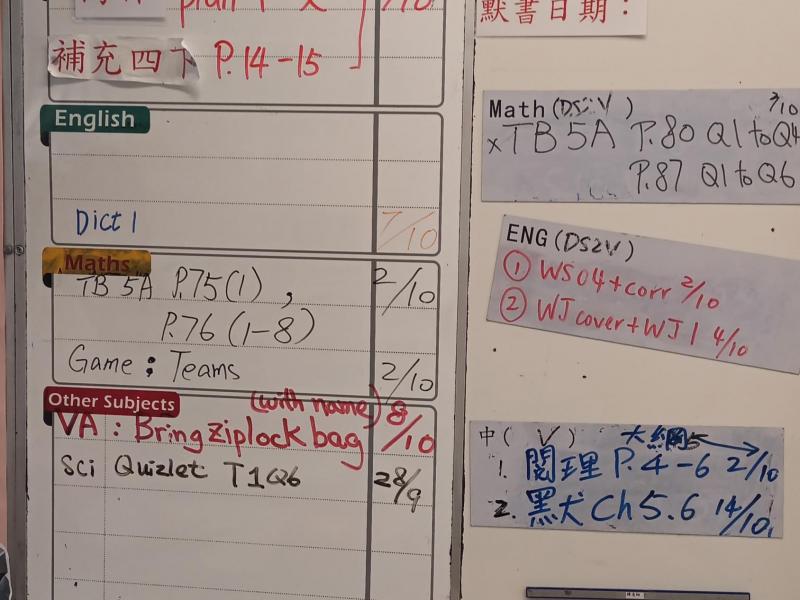 /10
補充四下 P.14-15
English
Dict 1 7/10
Maths
TB 5A P.75(1), 2/10
P.76 (1-8)
Game: Teams 2/10
Other Subjects
(with name) 8/10
VA: Bring ziplock bag
Sci Quizlet T1Q6 28/9
默書日期：
Math (DS V) 7/10
xTB 5A P.80 Q1 to Q4
P.87 Q1 to Q6
ENG (DS2V)
① WS04+corr 2/10
② WJ cover+WJ1 4/10
中( V )
1. 閱理 P.4-6 2/10
2. 黑犬 Ch5.6 14/10